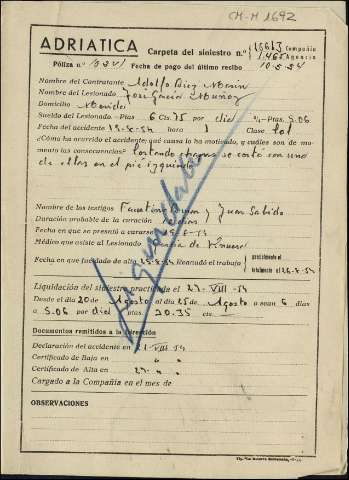 CM-M 1692
ADRIATICA Carpeta del siniestro n.º 16613 Compañía
1.465 Agencia
Póliza n.º Fecha de pago del último recibo 10-5-54
Nombre del Contratante Adolfo Diez
Nombre del Lesionado José García Muñoz
Domicilio
Sueldo del Lesionado - Ptas 6 Cts. 75 por dia Ptas. 5.06
Fecha del accidente 19-8-54 hora 1 Clase
¿Cómo ha ocurrido el accidente; qué causa lo ha motivado, y cuáles son de momento las consecuencias? cortando chapas se cortó con una
de ellas en el pie izquierdo
Nombre de los testigos Faustino y Juan Sabido
Duración probable de la curación
Fecha en que se presentó a curarse
Médico que asiste al Lesionado
Fecha en que fué dado de alta 25-8-54 Reanudó el trabajo parcialmente el
totalmente el 26-8-54
Liquidación del siniestro practicada el 27-VIII-54
Desde el día 20 de Agosto al día 25 de Agosto o sean 6 días
a 5.06 por dia ptas. 20.35 cts.
Documentos remitidos a la Dirección
Declaración del accidente en 21-VIII-54
Certificado de Baja en " "
Certificado de Alta en 27- " "
Cargado a la Compañía en el mes de
OBSERVACIONES